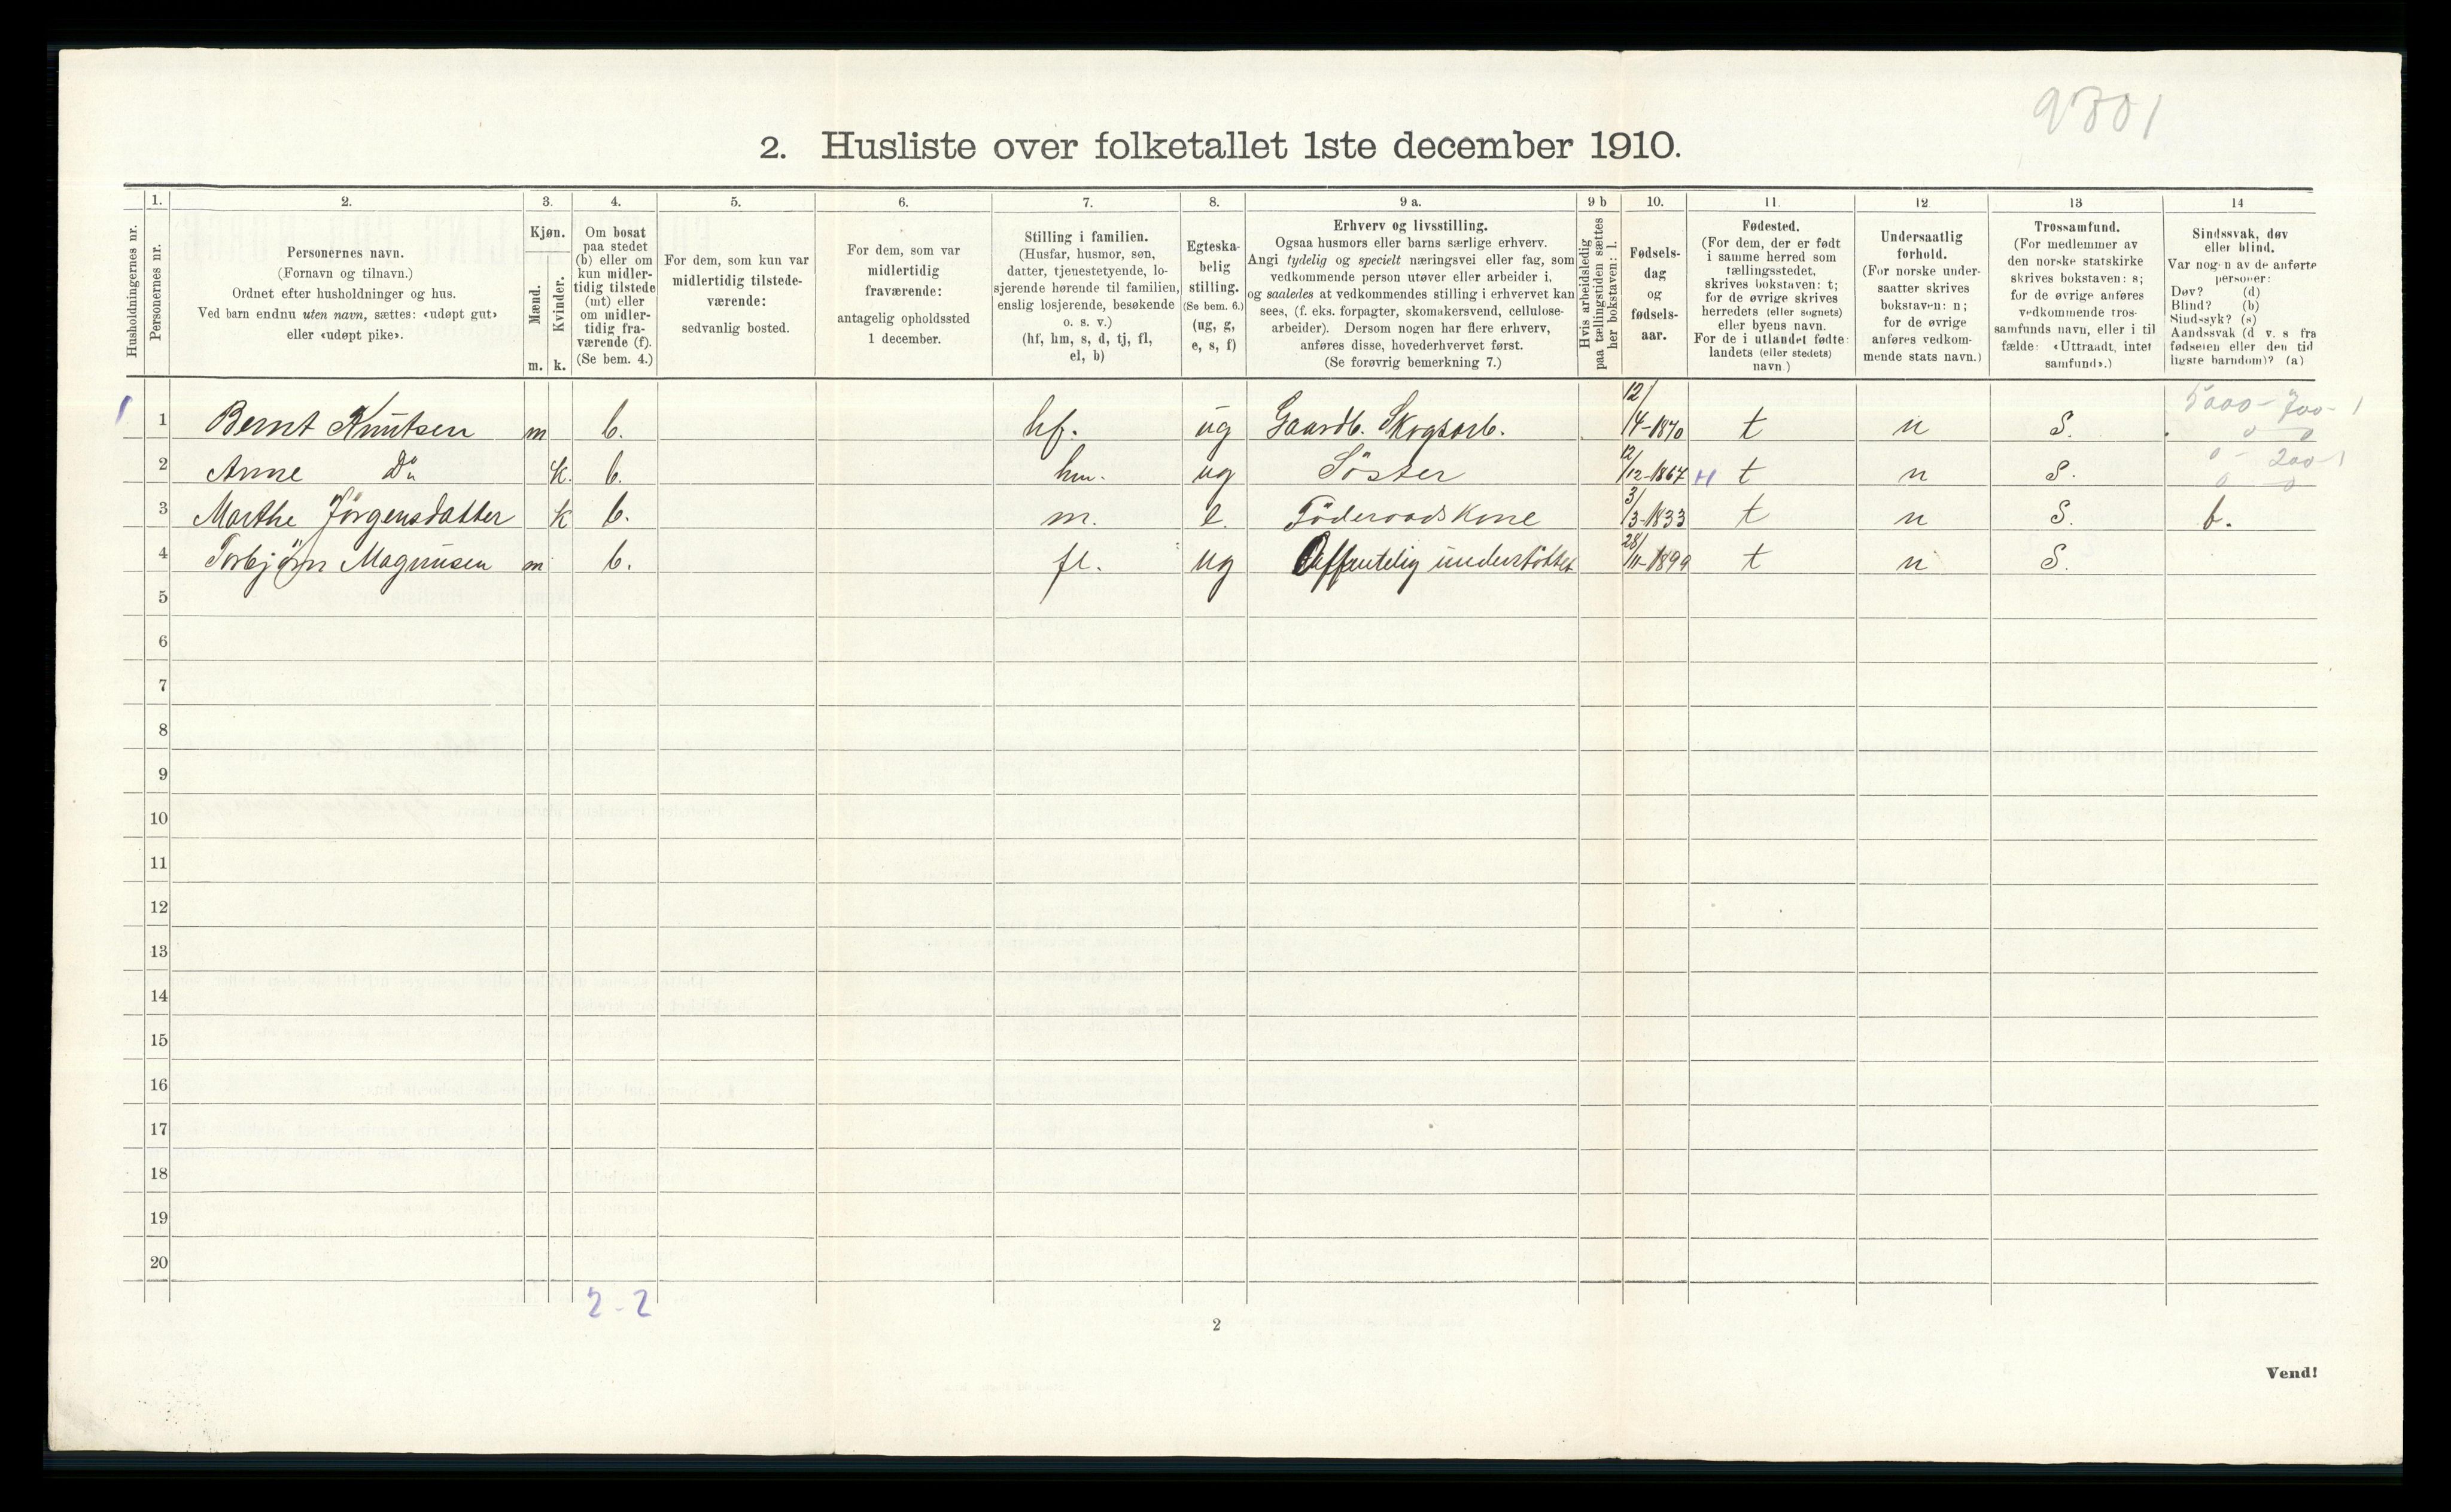 9801
2. Husliste over folketallet 1ste december 1910.
Husholdningernes nr.
1. Personernes nr.
2. Personernes navn. (Fornavn og tilnavn.) Ordnet efter husholdninger og hus. Ved barn endnu uten navn, sættes: «udøpt gut» eller «udøpt pike».
3. Kjøn. Mænd. m. Kvinder. k.
4. Om bosat paa stedet (b) eller om kun midlertidig tilstede (mt) eller om midlertidig fraværende (f). (Se bem. 4.)
5. For dem, som kun var midlertidig tilstedeværende: sedvanlig bosted.
6. For dem, som var midlertidig fraværende: antagelig opholdssted 1 december.
7. Stilling i familien. (Husfar, husmor, søn, datter, tjenestetyende, losjerende hørende til familien, enslig losjerende, besøkende o. s. v.) (hf, hm, s, d, tj, fl, el, b)
8. Egteskabelig stilling. (Se bem. 6.) (ug, g, e, s, f)
9 a. Erhverv og livsstilling. Ogsaa husmors eller barns særlige erhverv. Angi tydelig og specielt næringsvei eller fag, som vedkommende person utøver eller arbeider i, og saaledes at vedkommendes stilling i erhvervet kan sees, (f. eks. forpagter, skomakersvend, cellulosearbeider). Dersom nogen har flere erhverv, anføres disse, hovederhvervet først. (Se forøvrig bemerkning 7.)
9 b Hvis arbeidsledig paa tællingstiden sættes her bokstaven: l.
10. Fødselsdag og fødselsaar.
11. Fødested. (For dem, der er født i samme herred som tællingsstedet, skrives bokstaven: t; for de øvrige skrives herredets (eller sognets) eller byens navn. For de i utlandet fødte: landets (eller stedets) navn.)
12 Undersaatlig forhold. (For norske undersaatter skrives bokstaven: n; for de øvrige anføres vedkommende stats navn.)
13 Trossamfund. (For medlemmer av den norske statskirke skrives bokstaven: s; for de øvrige anføres vedkommende trossamfunds navn, eller i tilfælde: «Uttraadt, intet samfund».)
14 Sindssvak, døv eller blind. Var nogen av de anførte personer: Døv? (d) Blind? (b) Sindssyk? (s) Aandssvak (d v. s fra fødselen eller den tidligste barndom)? (a)
5000 - 700 - 1
1 1 Bernt Knutsen m b. hf. ug Gaardb. Skogsarb. 12/4-1870 t n S. 0 0
0 - 200-1
2 Anne Do k. b. hm. ug Söster 12/12-1867 H t n S. 0 0
3 Marthe Jörgensdatter k b. m. e. Föderaadskone 3/3-1833 t n S. b.
4 Torbjörn Magnusen m b. fl. ug Offentelig understöttet 28/11-1899 t n S.
5
6
7
8
9
10
11
12
13
14
15
16
17
18
19
20
2 - 2
2
Vend!